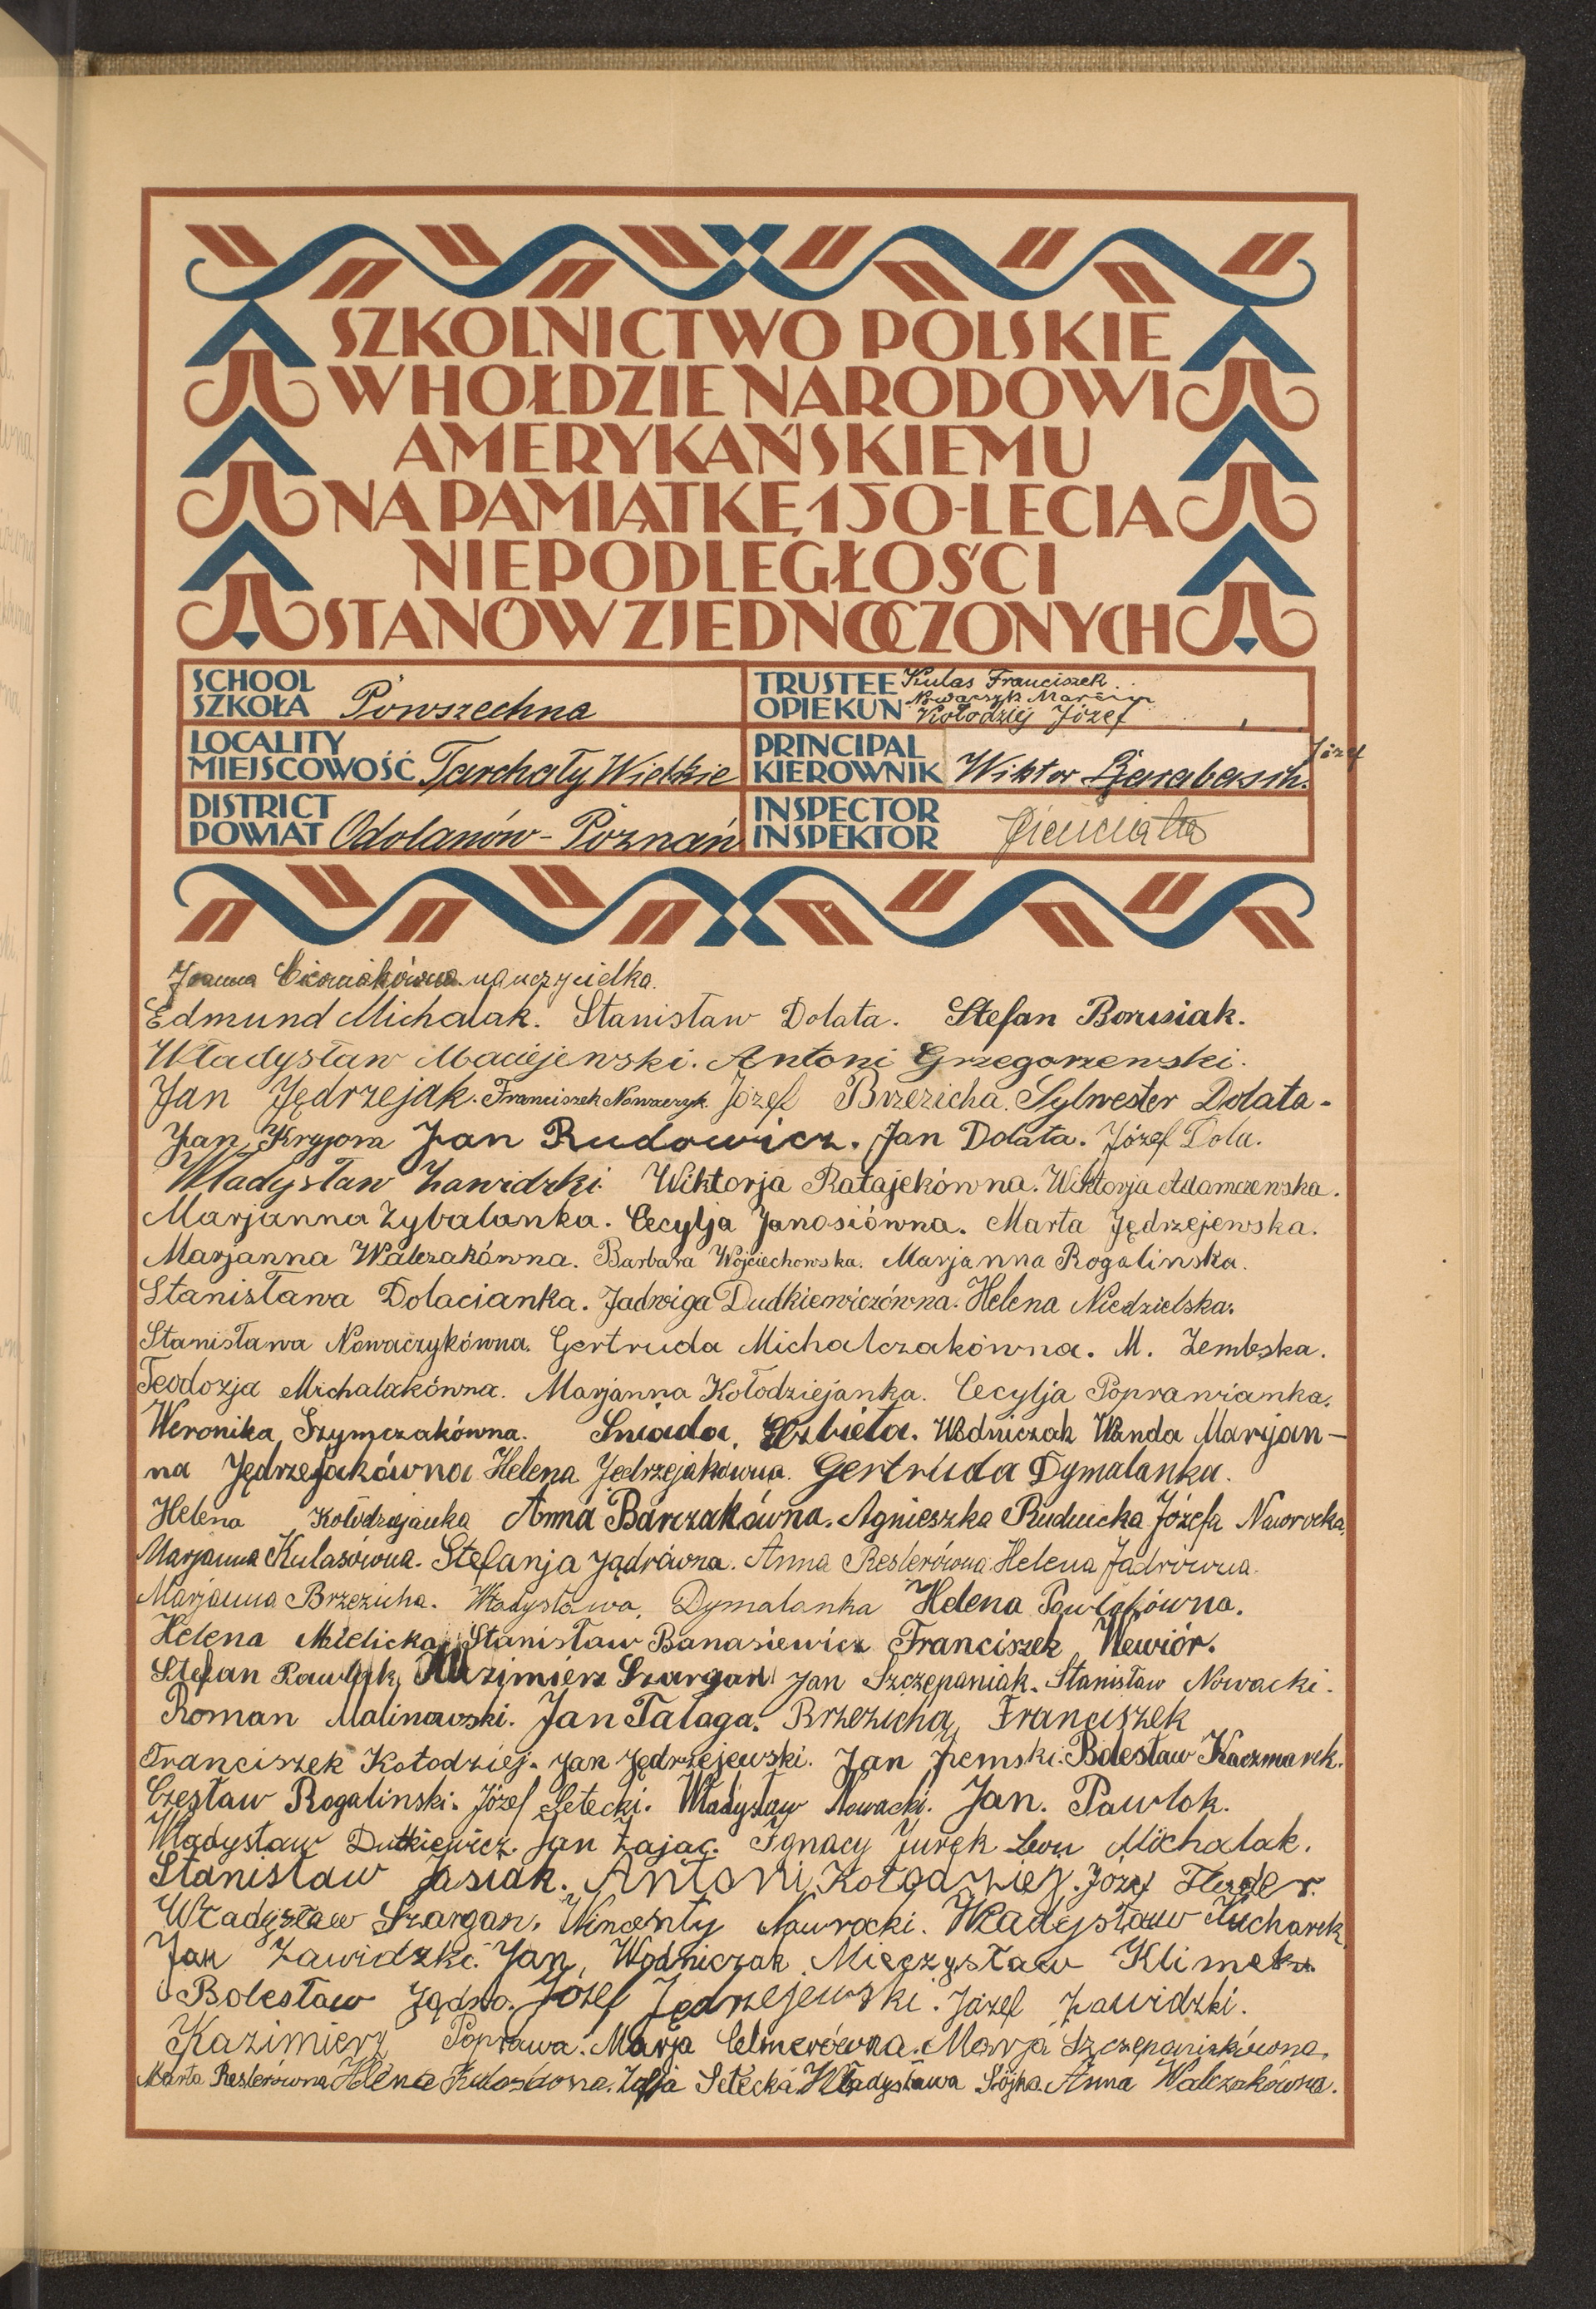 SZKOLNICTWO POLSKIE
W HOŁDZIE NARODOWI
AMERYKAŃSKIEMU
NA PAMIĄTKĘ 150-LECIA
NIEPODLEGŁOŚCI
STANÓW ZJEDNOCZONYCH
SCHOOL
SZKOŁA Powszechna
TRUSTEE Kulas Franciszek
OPIEKUN Kołodziej Józef
LOCALITY
MIEJSCOWOŚĆ Tarchały Wielkie
PRINCIPAL
KIEROWNIK Wiktor Józef
DISTRICT
POWIAT Odolanów - Poznań
INSPECTOR
INSPEKTOR
Joanna nauczycielka.
Edmund Michalak. Stanisław Dolata. Stefan Borusiak.
Władysław Maciejewski. Antoni Grzegorzewski.
Jan Jędrzejak. Franciszek Nowaczyk. Józef Brzezicha. Sylwester Dolata.
Jan Kryjom Jan Rudowicz. Jan Dolata. Józef Dola.
Władysław Zawidzki Wiktorja Ratajekówna. Wiktorja Adamczewska.
Marjanna Zybalanka. Cecylja Janosiówna. Marta Jędrzejewska.
Marjanna Walczakówna. Barbara Wojciechowska. Marjanna Rogalinska.
Stanisława Dolacianka. Jadwiga Dudkiewiczówna. Helena Niedzielska.
Stanisława Nowaczykówna. Gertruda Michalczakówna. M. Zembska.
Teodozja Michalakówna. Marjanna Kołodziejanka. Cecylja Poprawianka.
Weronika Szymczakówna. Śniada Elżbieta. Wodniczak Wanda Marjan-
na Jędrzejakówna Helena Jędrzejakówna. Gertruda Dymalanka.
Helena Kołodziejanka Anna Barczakówna. Agnieszka Rudnicka Józefa Nawrocka.
Marjanna Kulasówna. Stefanja Jądrówna. Anna Reslerówna Helena Jadrówna.
Marjanna Brzezicha. Władysława Dymalanka Helena Pawlokówna.
Helena Mielicka, Stanisław Banasiewicz Franciszek Wewiór.
Stefan Pawlak, Kazimierz Szargan Jan Szczepaniak. Stanisław Nowacki.
Roman Malinowski. Jan Talaga. Brzezicha, Franciszek
Franciszek Kołodziej. Jan Jędrzejewski. Jan Ziemski. Bolesław Kaczmarek.
Czesław Rogalinski. Józef Setecki. Władysław Nowacki. Jan. Pawlok.
Władysław Dutkiewicz. Jan Zając. Ignacy Jurek Leon Michalak.
Stanisław Jasiak. Antoni Józef
Władysław Szargan. Wincenty Nawrocki. Władysław Kucharek
Jan Zawidzki. Jan, Wodniczak Mieczysław Klimek.
Bolesław Jądro. Józef Jędrzejewski. Józef Zawidzki.
Kazimierz Poprawa. Marja Celmerówna. Marja Szczepaniakówna.
Marta Reslerówna Helena Kulasówna. Zofja Setecka Władysława Sójka. Anna Walczakówna.